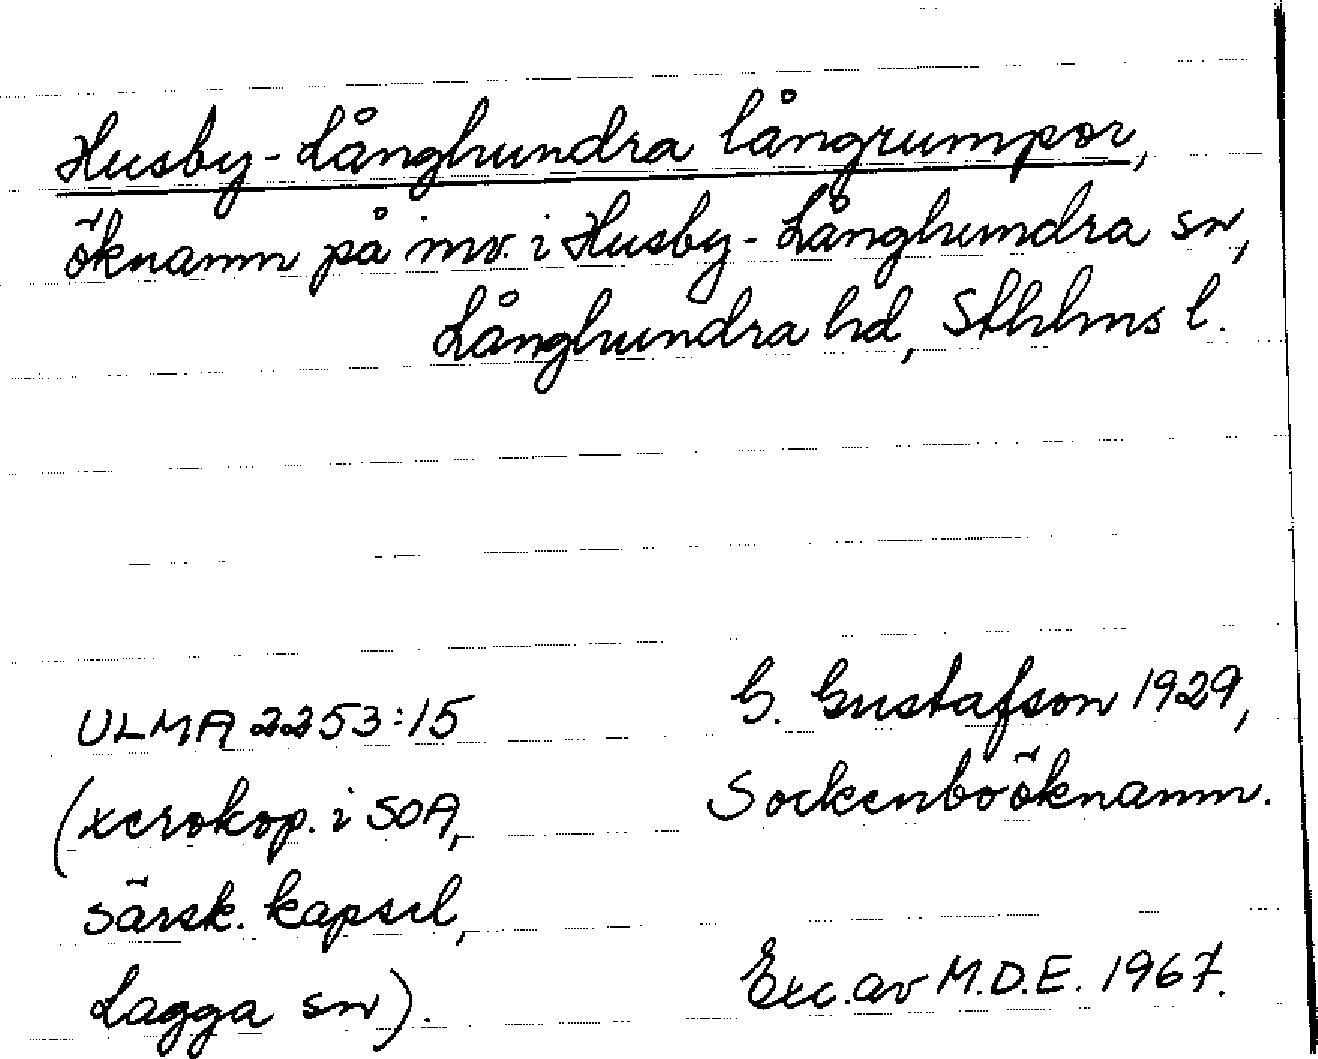 Husby-Långhundra långrumpor,
öknamn på inv. i Husby-Långhundra sn,
Långhundra hd, Sthlms l.
ULMA 2253:15
(xerokop. i SOA,
särsk. kapsel,
Lagga sn).
G. Gustafson 1929,
Sockenboöknamn.
Exc. av M.D.E. 1967.